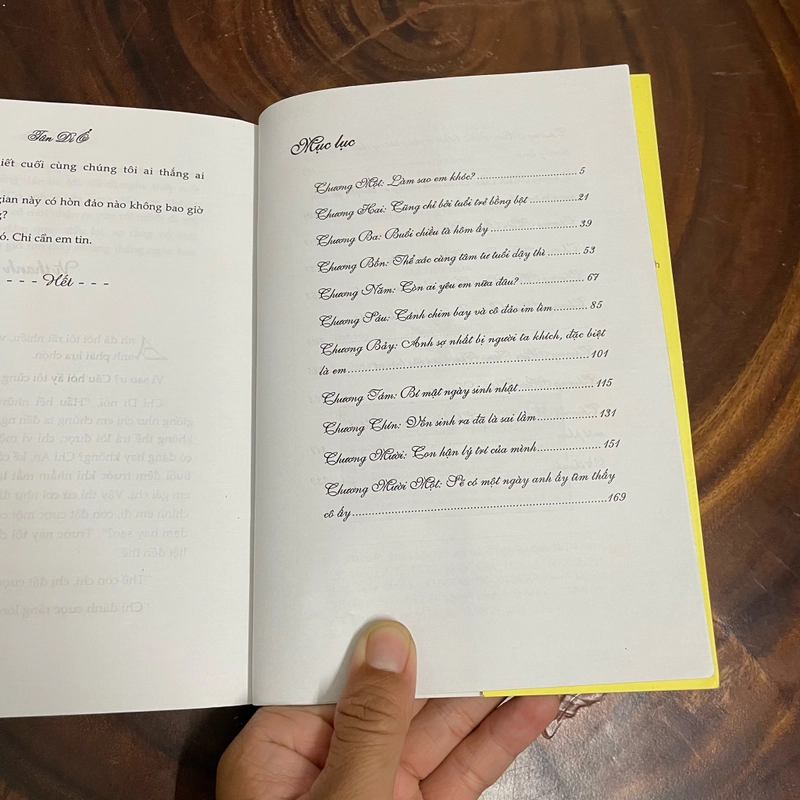 Tân Di Ổ
iết cuối cùng chúng tôi ai thắng ai
gian này có hòn đảo nào không bao giờ
g?
ó. Chỉ cần em tin.
- - - Hết - - -
Mục lục
Chương Một: Làm sao em khóc? ........ 5
Chương Hai: Cũng chỉ bởi tuổi trẻ bồng bột ........ 21
Chương Ba: Buổi chiều tà hôm ấy ........ 39
Chương Bốn: Thể xác cùng tâm tư tuổi dậy thì ........ 53
Chương Năm: Còn ai yêu em nữa đâu? ........ 67
Chương Sáu: Cánh chim bay và cô đảo im lìm ........ 85
Chương Bảy: Anh sợ nhất bị người ta khích, đặc biệt
là em ........ 101
Chương Tám: Bí mật ngày sinh nhật ........ 115
Chương Chín: Vốn sinh ra đã là sai lầm ........ 131
Chương Mười: Con hận lý trí của mình ........ 151
Chương Mười Một: Sẽ có một ngày anh ấy tìm thấy
cô ấy ........ 169